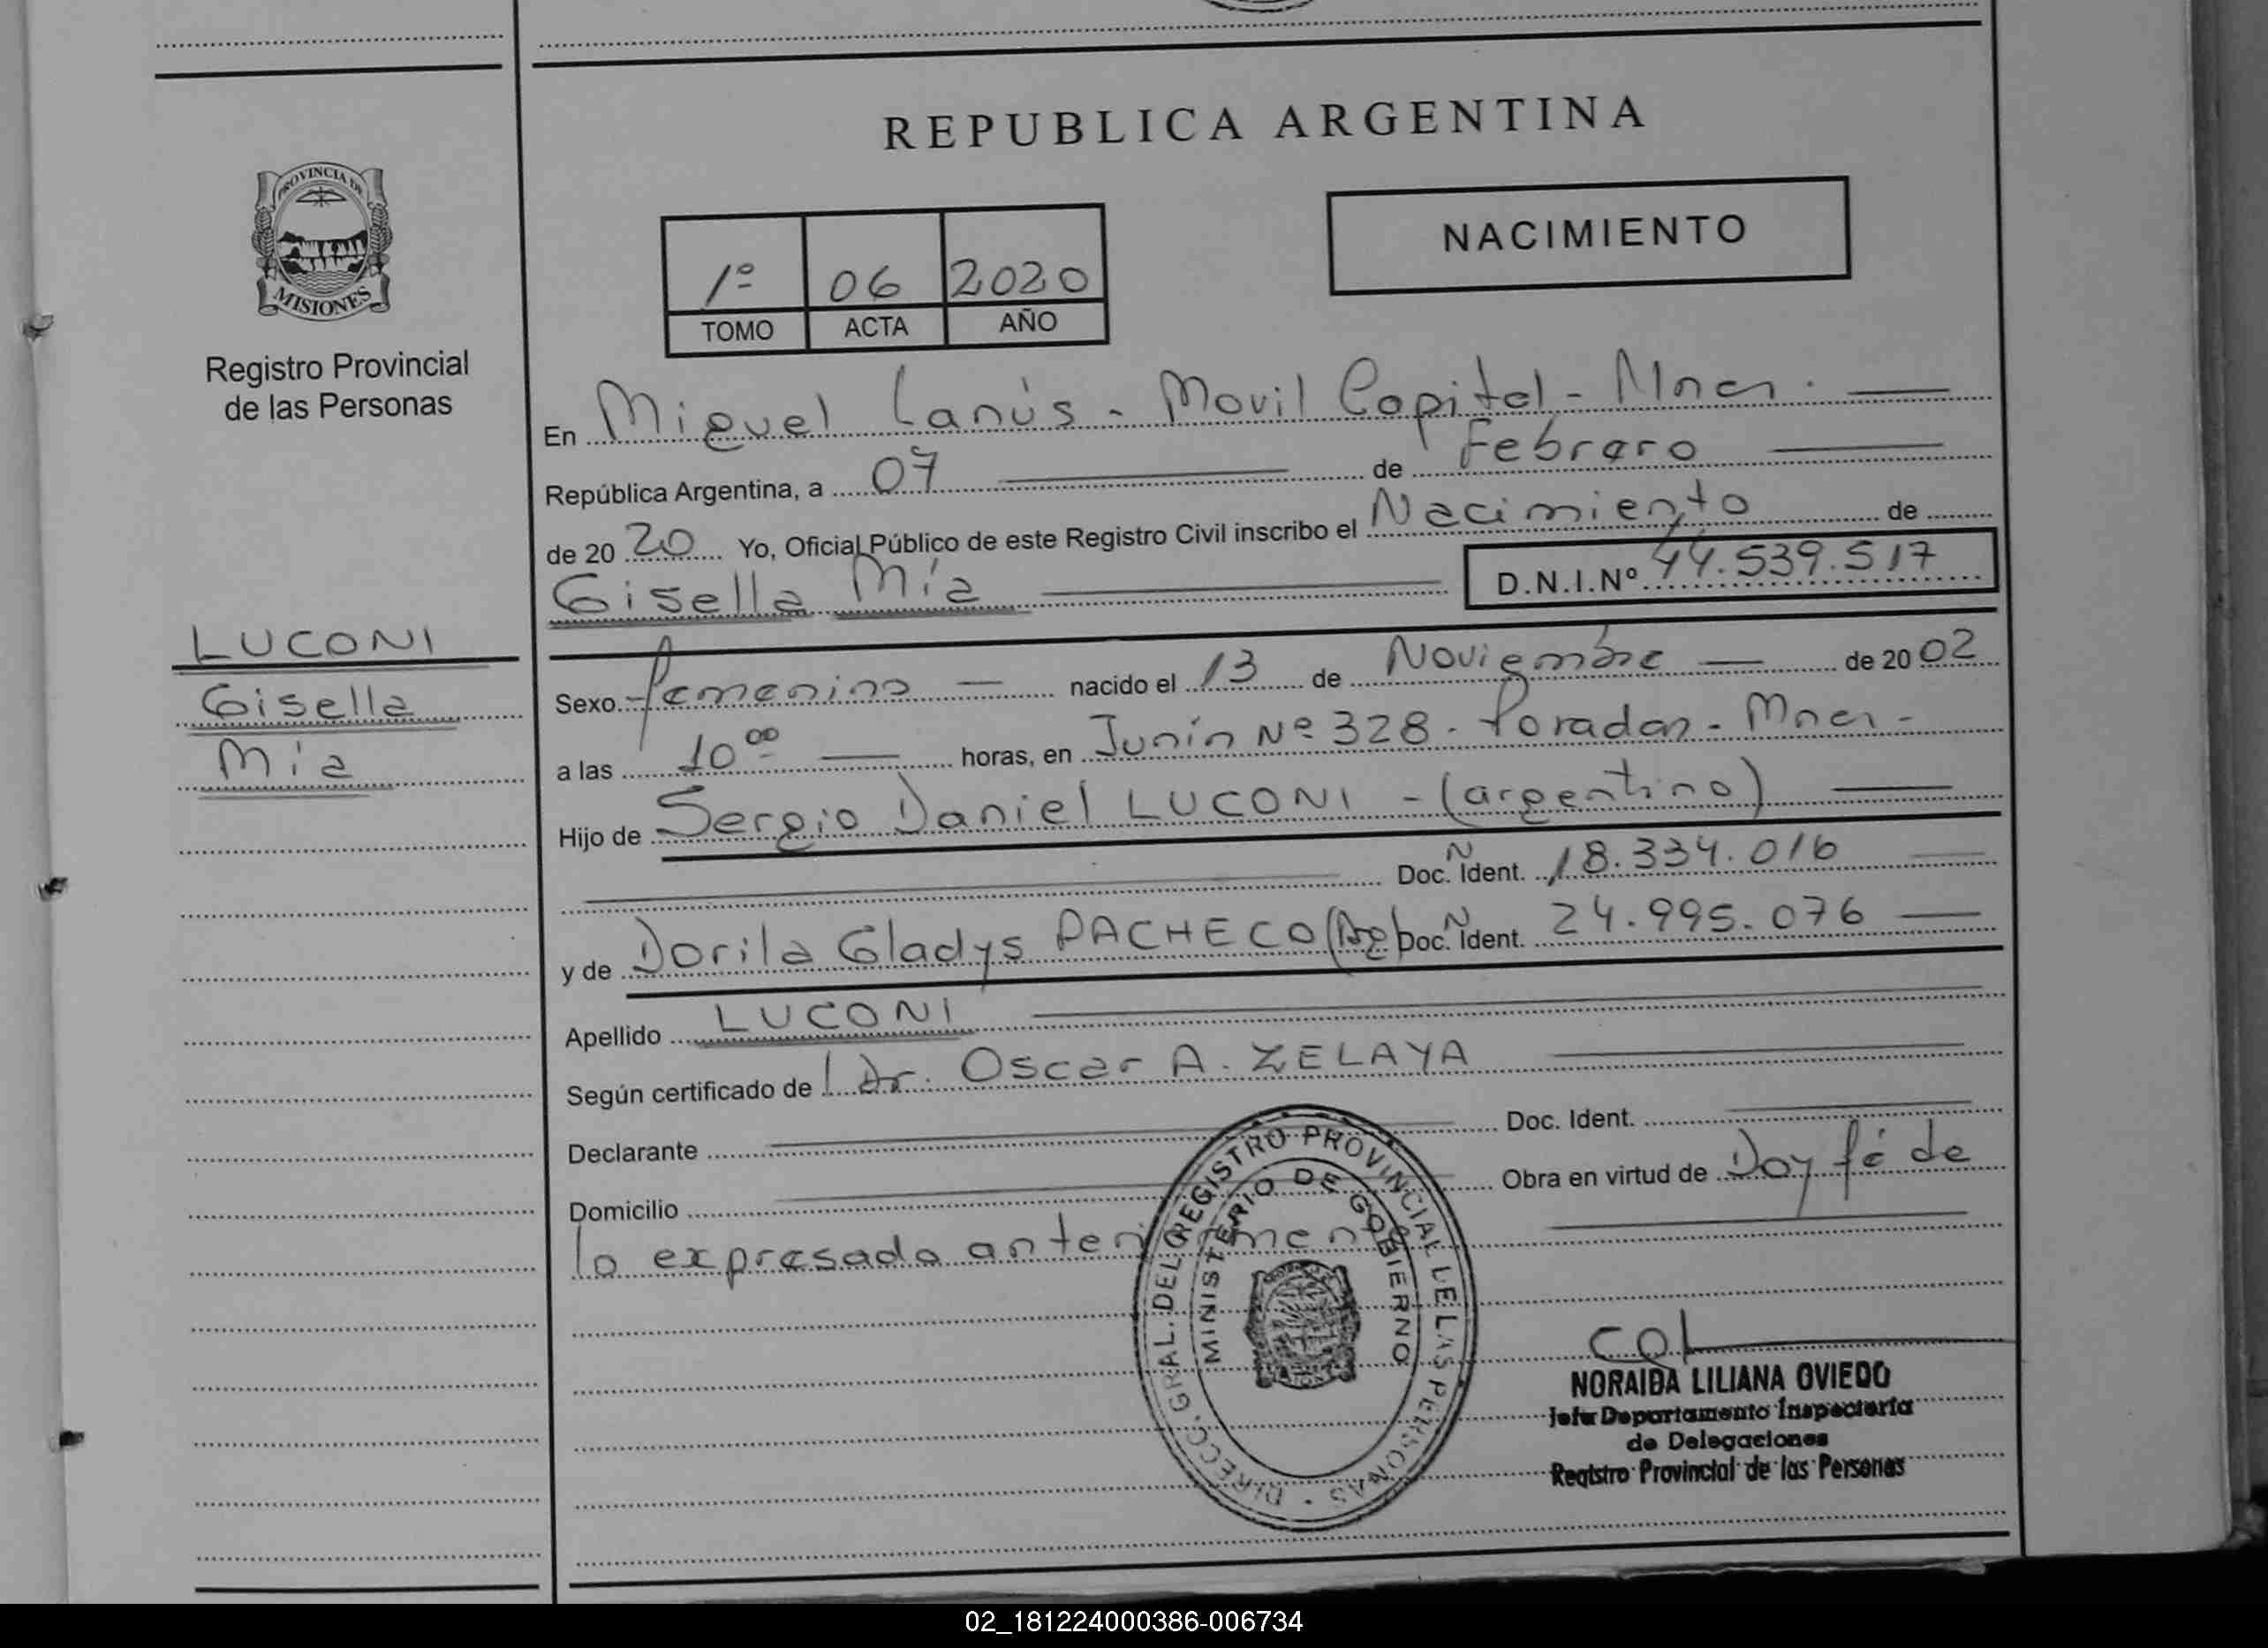 REPUBLICA ARGENTINA
PROVINCIA DE
MISIONES
Registro Provincial
de las Personas
NACIMIENTO
1º 06 2020
TOMO ACTA AÑO
En Miguel Lanús - Movil Capital - Mnes. —
República Argentina, a 07 — de Febrero —
de 20 20 Yo, Oficial Público de este Registro Civil inscribo el Nacimiento de
Gisella Mía — D.N.I.Nº 44.539.517
LUCONI
Gisella
Mía
Sexo femenino — nacido el 13 de Noviembre — de 20 02
a las 10 00 — horas, en Junín Nº 328 - Posadas - Mnes -
Hijo de Sergio Daniel LUCONI - (argentino) —
Doc. Ident. Ñ 18.334.016 —
y de Dorila Gladys PACHECO (Arg) Doc. Ident. Ñ 24.995.076 —
Apellido LUCONI —
Según certificado de Dr. Oscar A. ZELAYA —
Declarante — Doc. Ident. —
Domicilio — Obra en virtud de Doy fé de
lo expresado anteriormente —
DIRECC. GRAL. DEL REGISTRO PROVINCIAL DE LAS PERSONAS
MINISTERIO DE GOBIERNO
NORAIDA LILIANA OVIEDO
Jefa Departamento Inspectoría
de Delegaciones
Registro Provincial de las Personas
02_181224000386-006734